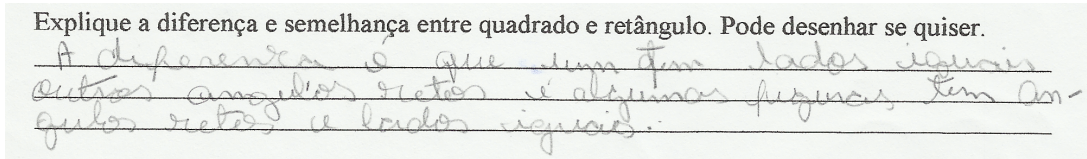 Explique a diferença e semelhança entre quadrado e retângulo. Pode desenhar se quiser.
A diferença é que um tem lados iguais
outros angulos retos e algumas figuras tem an-
gulos retos e lados iguais.